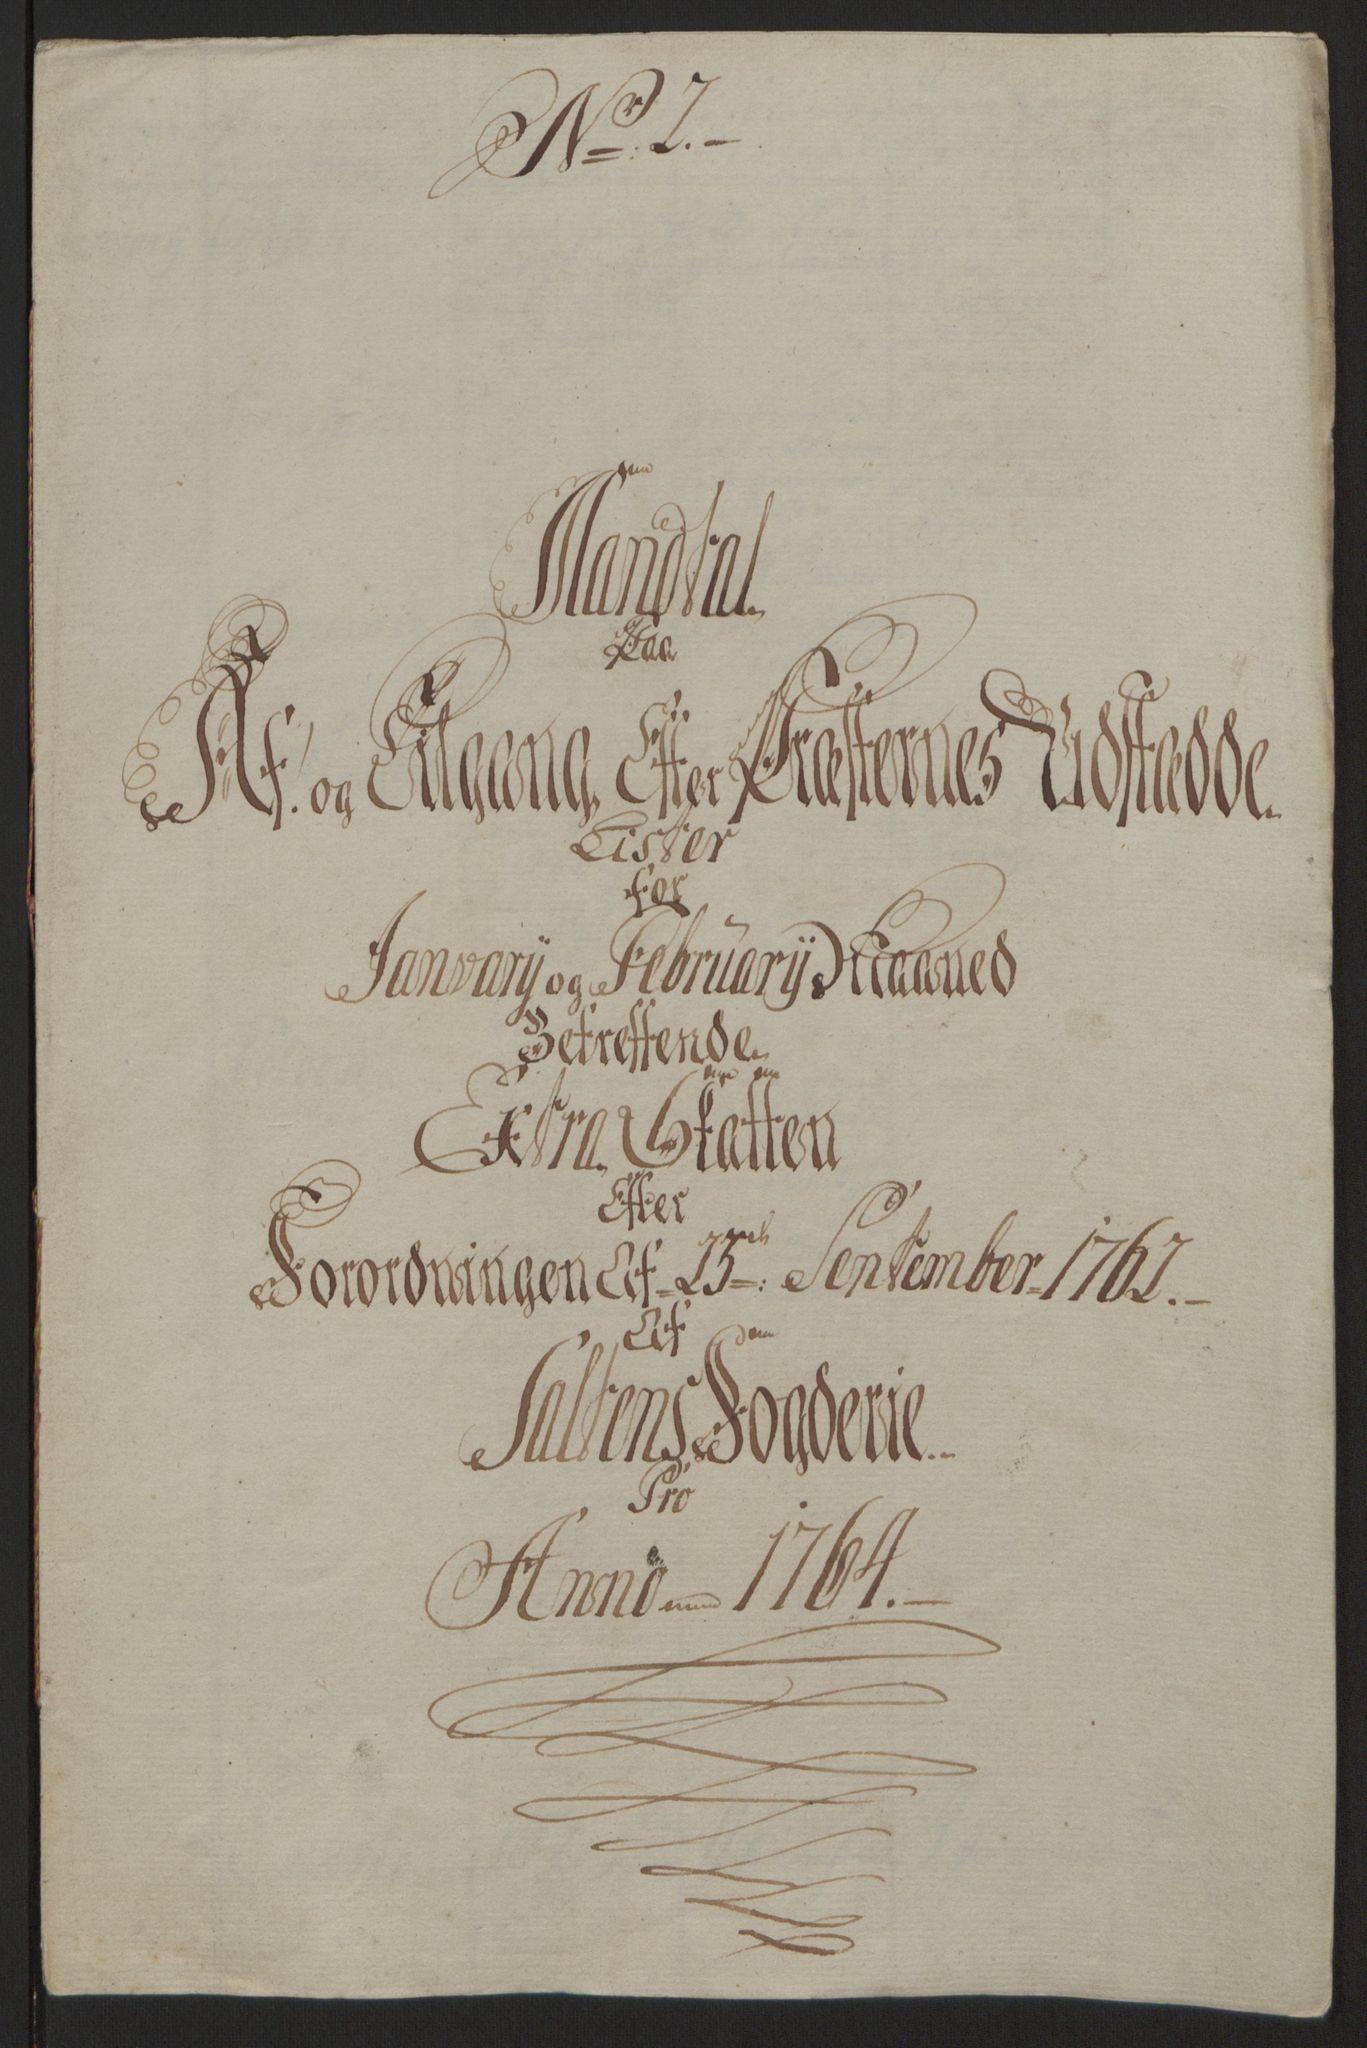 No: 2.
Mandtal
Paa
Af- og Tilgang, Efter Præsternes Udstædde
Lister
for
Janvarij og Februarij Maaned
Betreffende
Extra Skatten
Efter
Forordningen Af 23de: September 1762.
Af
Saltens Fogderie
Pro
Anno 1764.